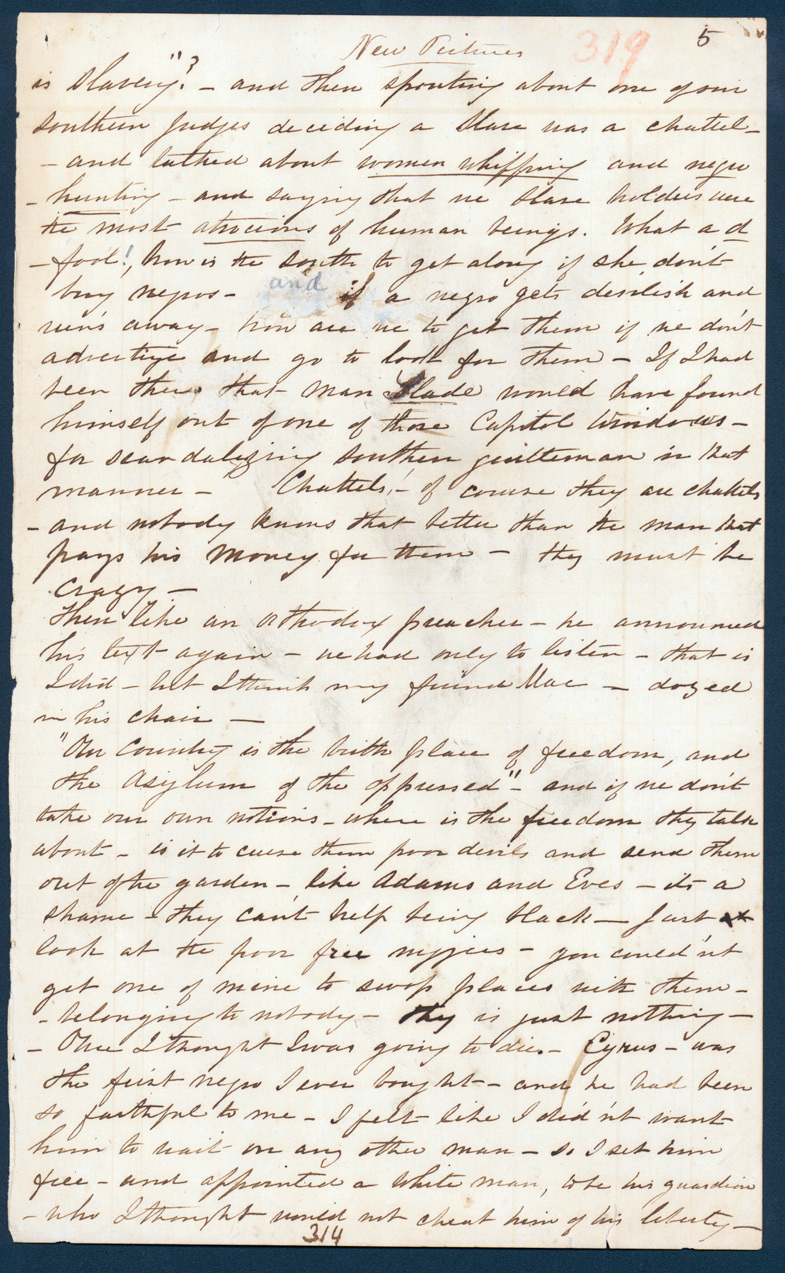 New Pictures
319
5
is slavery"? - and then spouting about one of our
southern Judges deciding a slave was a chattel -
- and talked about women whipping and negro
- hunting - and saying that we slave holders were
the most atrocious of human beings. What a d
- fool!, how is the south to get along if she don't
buy negros - and if a negro gets devilish and
runs away - how are we to get them if we don't
advertize and go to look for them - If I had
been there that man Slade would have found
himself out of one of those Capitol windows -
for scandalizing southern gentleman in that
manner - "Chattels," - of course they are chattels
- and nobody knows that better than the man that
pays his money for them - they must be
crazy -
Then like an orthodox preacher - he announced
his text again - we had only to listen - that is
I did - but I think my friend Mac - dozed
in his chair -
"Our Country is the birth place of freedom, and
the Asylum of the oppressed" - and if we don't
take our own notions - where is the freedom they talk
about - is it to curse them poor devils and send them
out of the garden - like Adams and Eves - its a
shame - they can't help being black - Just
look at the poor free niggies - you could'nt
get one of mine to swop places with them -
- belonging to nobody - they is just nothing -
- Once I thought I was going to die - Cyrus - was
the first negro I ever bought - and he had been
so faithful to me - I felt like I did'nt want
him to wait on any other man - so I set him
free - and appointed a white man, to be his guardian
- who I thought would not cheat him of his liberty -
314